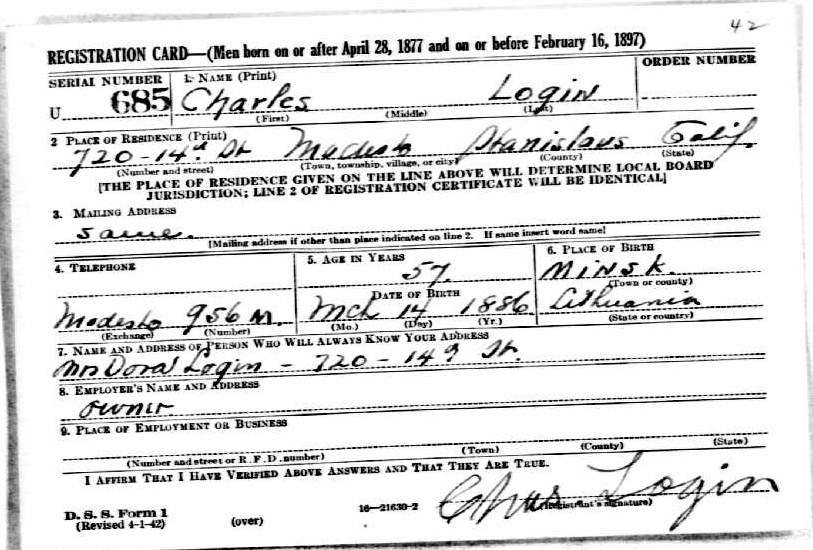 42
REGISTRATION CARD—(Men born on or after April 28, 1877 and on or before February 16, 1897)
SERIAL NUMBER 1. NAME (Print) ORDER NUMBER
U 685 Charles Login
(First) (Middle) (Last)
2 PLACE OF RESIDENCE (Print)
720-14th St Modesto Stanislaus Calif.
(Number and street) (Town, township, village, or city) (County) (State)
[THE PLACE OF RESIDENCE GIVEN ON THE LINE ABOVE WILL DETERMINE LOCAL BOARD
JURISDICTION; LINE 2 OF REGISTRATION CERTIFICATE WILL BE IDENTICAL]
3. MAILING ADDRESS
same.
[Mailing address if other than place indicated on line 2. If same insert word same]
4. TELEPHONE 5. AGE IN YEARS 6. PLACE OF BIRTH
57. Minsk.
DATE OF BIRTH (Town or county)
Modesto 956 M. Mch 14 1886 Lithuania
(Exchange) (Number) (Mo.) (Day) (Yr.) (State or country)
7. NAME AND ADDRESS OF PERSON WHO WILL ALWAYS KNOW YOUR ADDRESS
Mrs Dora Login - 720 - 14th St.
8. EMPLOYER'S NAME AND ADDRESS
owner
9. PLACE OF EMPLOYMENT OR BUSINESS
(Number and street or R. F. D. number) (Town) (County) (State)
I AFFIRM THAT I HAVE VERIFIED ABOVE ANSWERS AND THAT THEY ARE TRUE.
Chas Login
D. S. S. Form 1 16—21630-2 (Registrant's signature)
(Revised 4-1-42) (over)